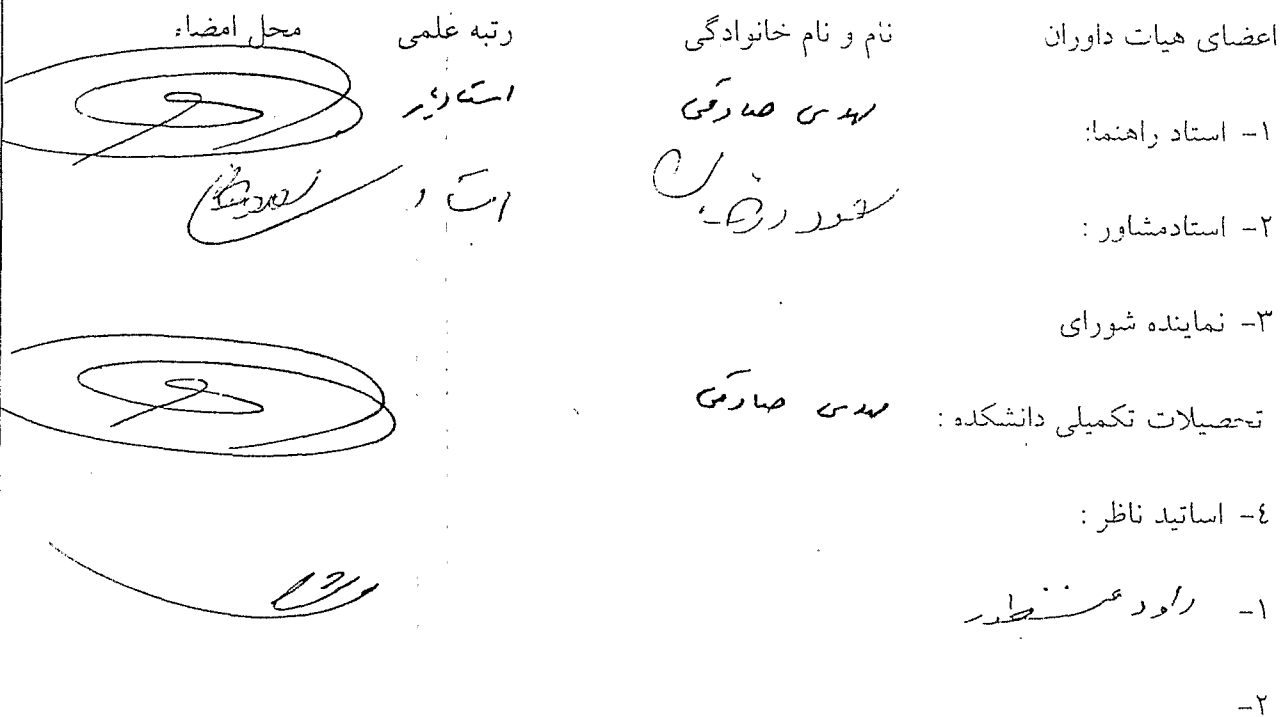 اعضای هیات داوران نام و نام خانوادگی رتبه علمی محل امضاء
۱- استاد راهنما: مهدی صادقی استادیار
۲- استادمشاور : استاد
۳- نماینده شورای
تحصیلات تکمیلی دانشکده : مهدی صادقی
٤- اساتید ناظر :
۱-
۲-